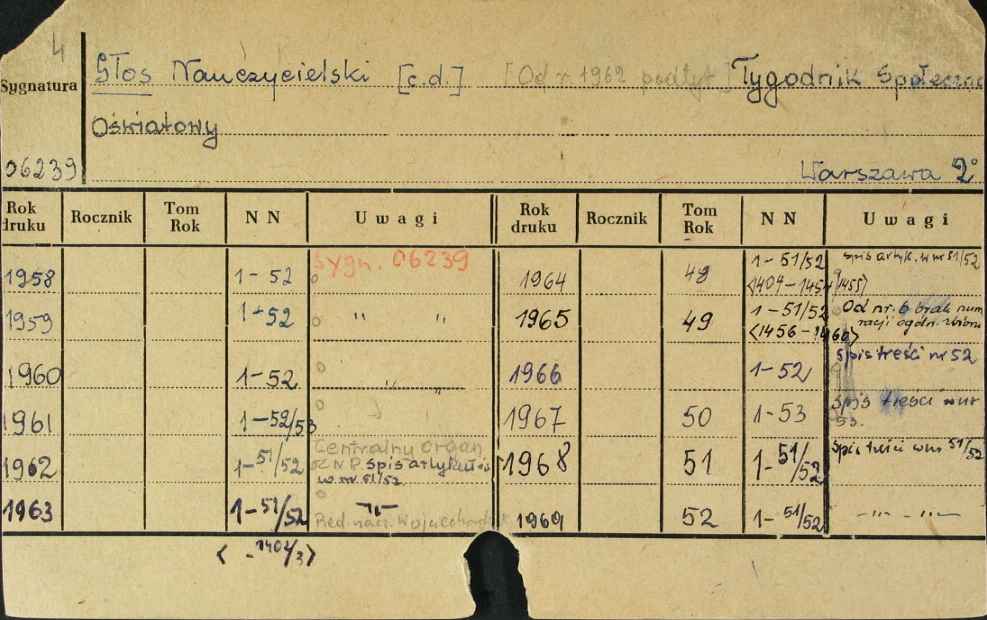 4
Głos Nauczycielski [c.d.] [Od r. 1962 podtyt] Tygodnik Społeczno
Sygnatura
Oświatowy
06239 Warszawa 2°
Rok druku Rocznik Tom Rok NN Uwagi Rok druku Rocznik Tom Rok NN Uwagi
1958 1-52 sygn. 06239 1964 48 1-51/52 spis artyk. w nr 51/52
<1404-1454 (1455)
1959 1-52 " " 1965 49 1-51/52 Od nr. 6 brak nume
<1456-1460> racji ogóln. zbioru
1960 1-52 " " 1966 1-52 Spis treści nr 52
1961 1-52/53 1967 50 1-53 Spis treści w nr
53.
1962 1-51/52 Centralny organ 1968 51 1-51/52 Spis treści w nr 51/52
Z N P. spis artykułów
w nr. 51/52
1963 1-51/52 -"- 1969 52 1-51/52 -"- -"-
Red. nacz. Wojciechowski
< -1402/3>